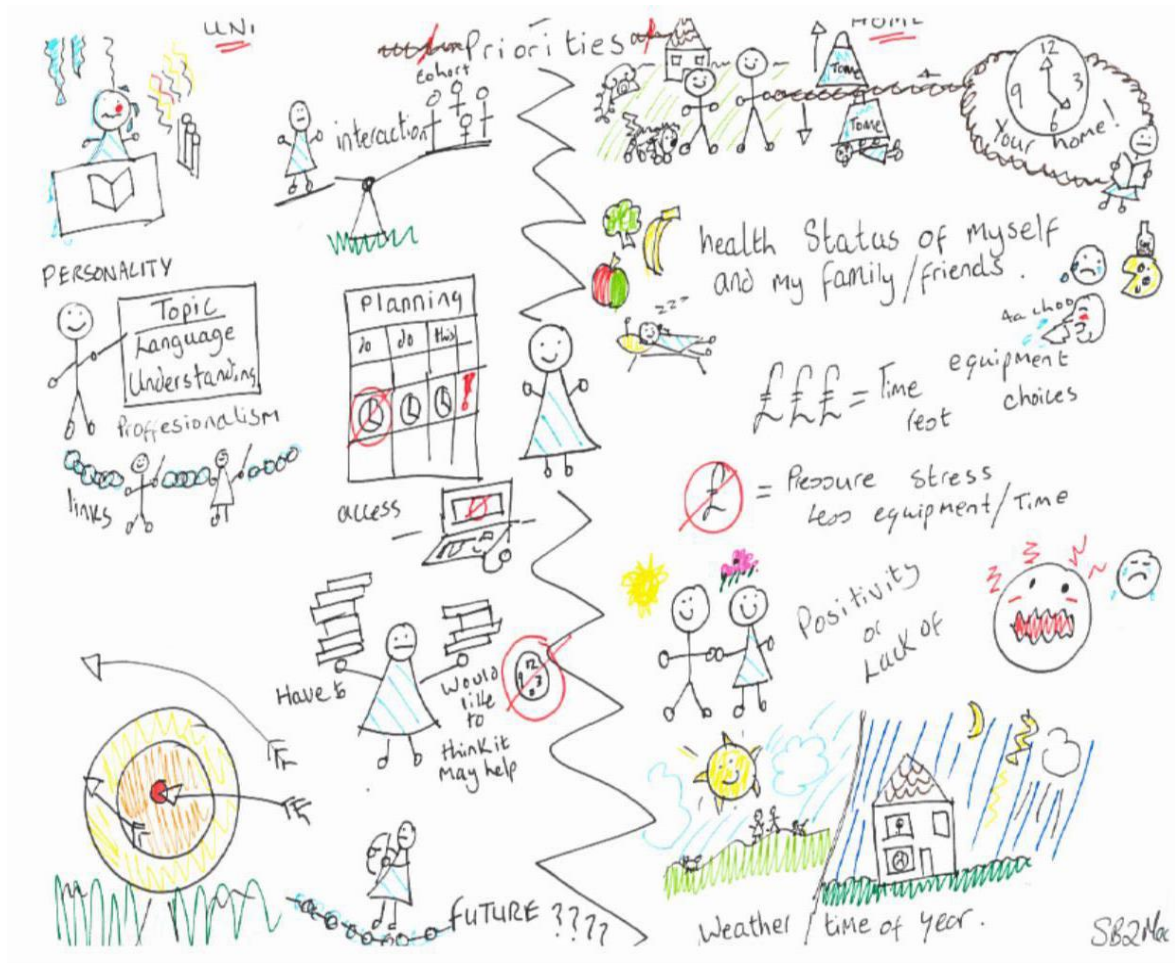 UNI
Priorities
HOME
cohort
interaction
Tome
Tome
12
9 3
6
Your home!
PERSONALITY
Topic
Language
Understanding
Proffesionalism
links
Planning
do do this
!
access
health Status of Myself
and my family/friends.
zzz
Aa choo
£££ = Time equipment
rest choices
£ = Pressure stress
Less equipment/Time
Positivity
or
Lack of
Have to
Would
like
to
think it
May help
12
9 3
6
FUTURE ????
Weather/time of year.